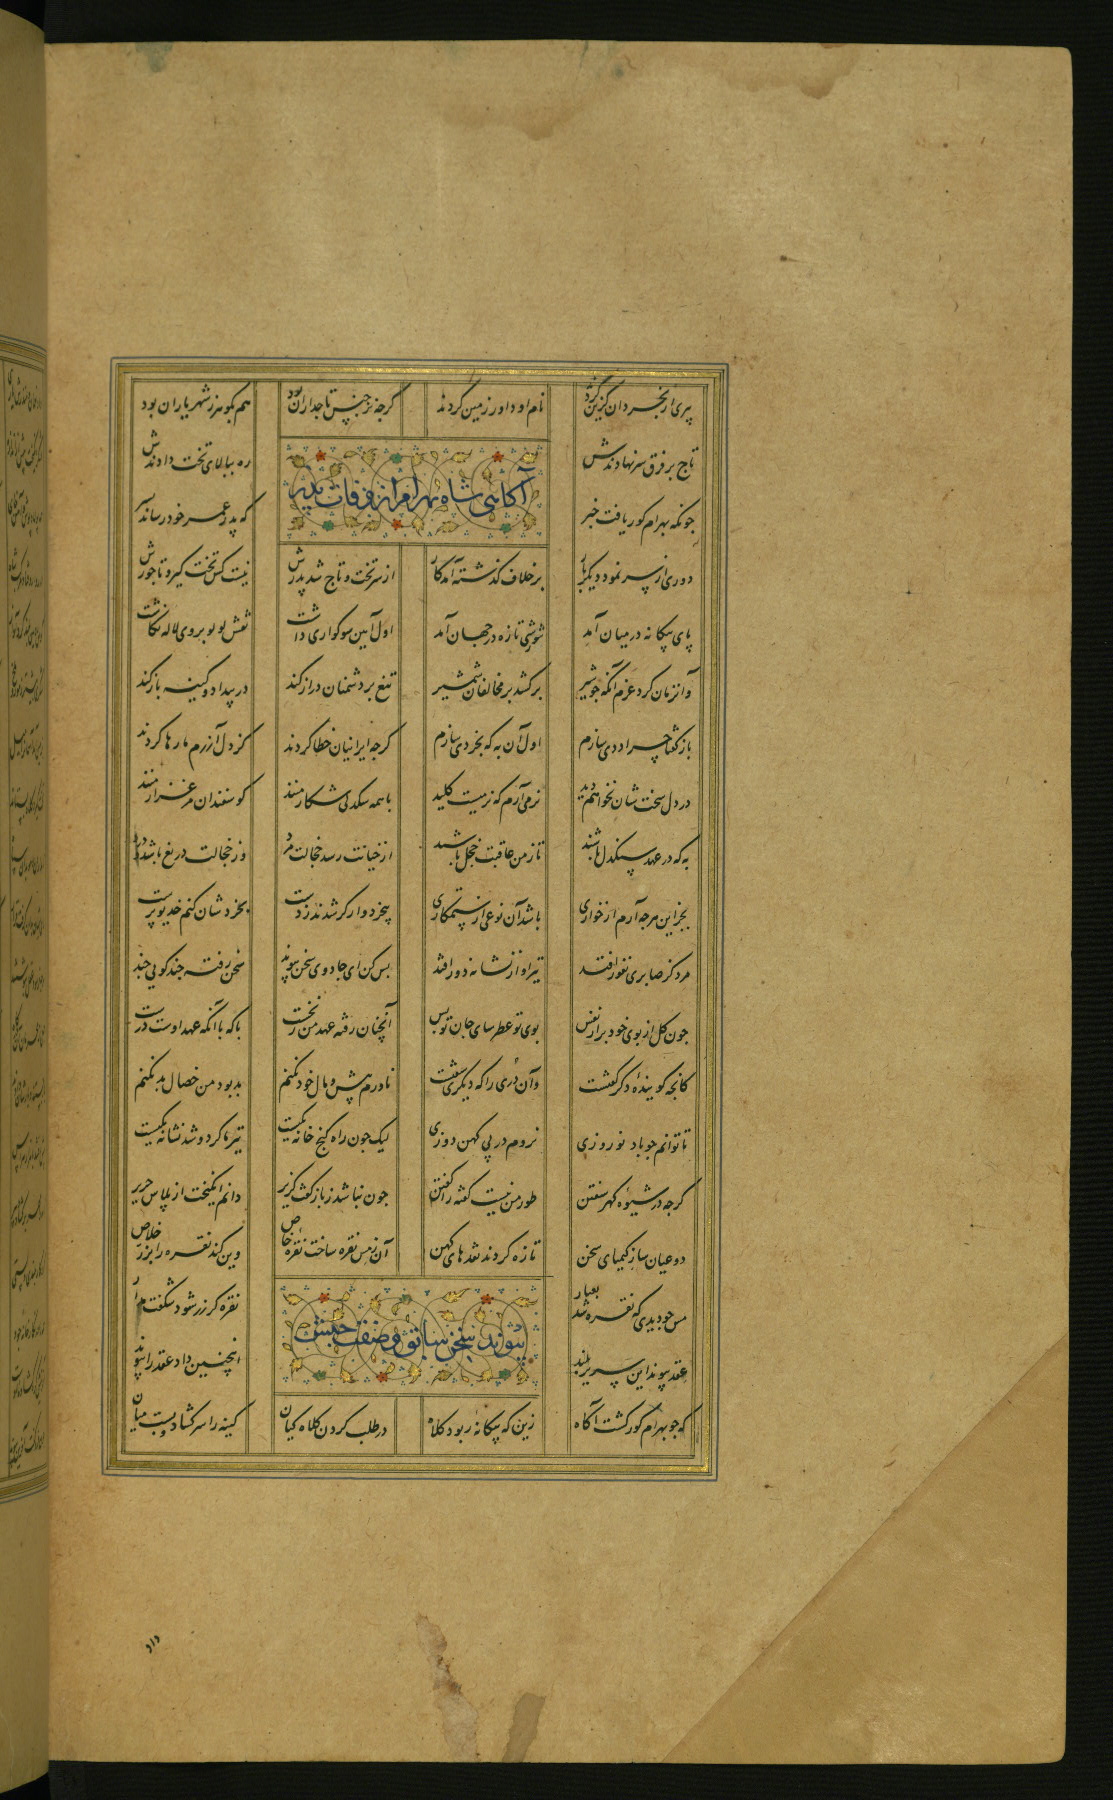 پیری از بخردان گزین کردند نام او داور زمین کردند گرچه نز جنس تاجداران بود هم بگوهر ز شهریاران بود
تاج بر فرق سر نهادندش ره ببالای تخت دادندش
آگاهی شاه بهرام از وفات پدر
چونکه بهرام گور یافت خبر که پدر عمر خود رساند
دوری از سر نمود دیگر بار بر خلاف گذشته آمد کار از سر تخت و تاج شد پدرش نیست کس تخت گیر و تاجورش
پای بیگانه در میان آمد شورشی تازه در جهان آمد اول آیین سوگواری داشت نقش لولو بروی لاله نگاشت
وانزمان کرد عزم آنگه چو شیر برکشد بر مخالفان شمشیر تیغ بر دشمنان دراز کند در بیداد و کینه باز کند
باز گفتا چرا ددی سازم اول آن به که بخردی سازم گرچه ایرانیان خطا کردند کز دل آزرم ما رها کردند
در دل سخت شان نخواهم دید نرمی آرم که نرمیست کلید با همه سگدلی شکار منند گوسفندان مرغزار منند
به که در عهد سنگدل باشند تا ز من عاقبت خجل باشند از خیانت رسد خجالت مرد وز خجالت دریغ باشد درد
بجز این هرچه آرم از خواری باشد آن نوعی از ستمکاری بیخردوار گر شدند ز دست بخردشان کنم خدیو پرست
مرد کز صابری نفور افتد تیر او از نشانه دور افتد بس کن ای جادوی سخن پیوند سخن رفته چند گویی چند
چون گل از بوی خود برار نفس بوی تو عطرسای جان تو بس آنچنان رفت عهد من ز نخست با که با آنکه عهد اوست درست
کانچه گوینده دگر گفت وآن دری را که دیگری سفت پیش مال خود نکنم بد بود من خصال بد نکنم
تا توانم چو باد نوروزی نروم در پی کهن دوزی لیک چون راه گنج خانه یکیست تیر ما گر دو شد نشانه یکیست
گرچه در شیوه گهر سفتن طور من نیست گفته را گفتن چون نباشد ز باز گفت گزیر دانم انگیخت از پلاس حریر
دو ساز کیمیای سخن تازه کردند نقدهای کهن آن ز مس نقره ساخت نقره خاص وین کند نقره را بزر خلاص
مس چو دیدی که نقره شد بعیار نقره گر زر شود شگفت
عقد پیوند این سریر بلند اینچنین داد عقد را پیوند
پیوند سخن
که چو بهرام گور گشت آگاه زین که بیگانه ربود کلاه در طلب کردن کلاه کیان کینه را سر گشاد و بست میان
داد